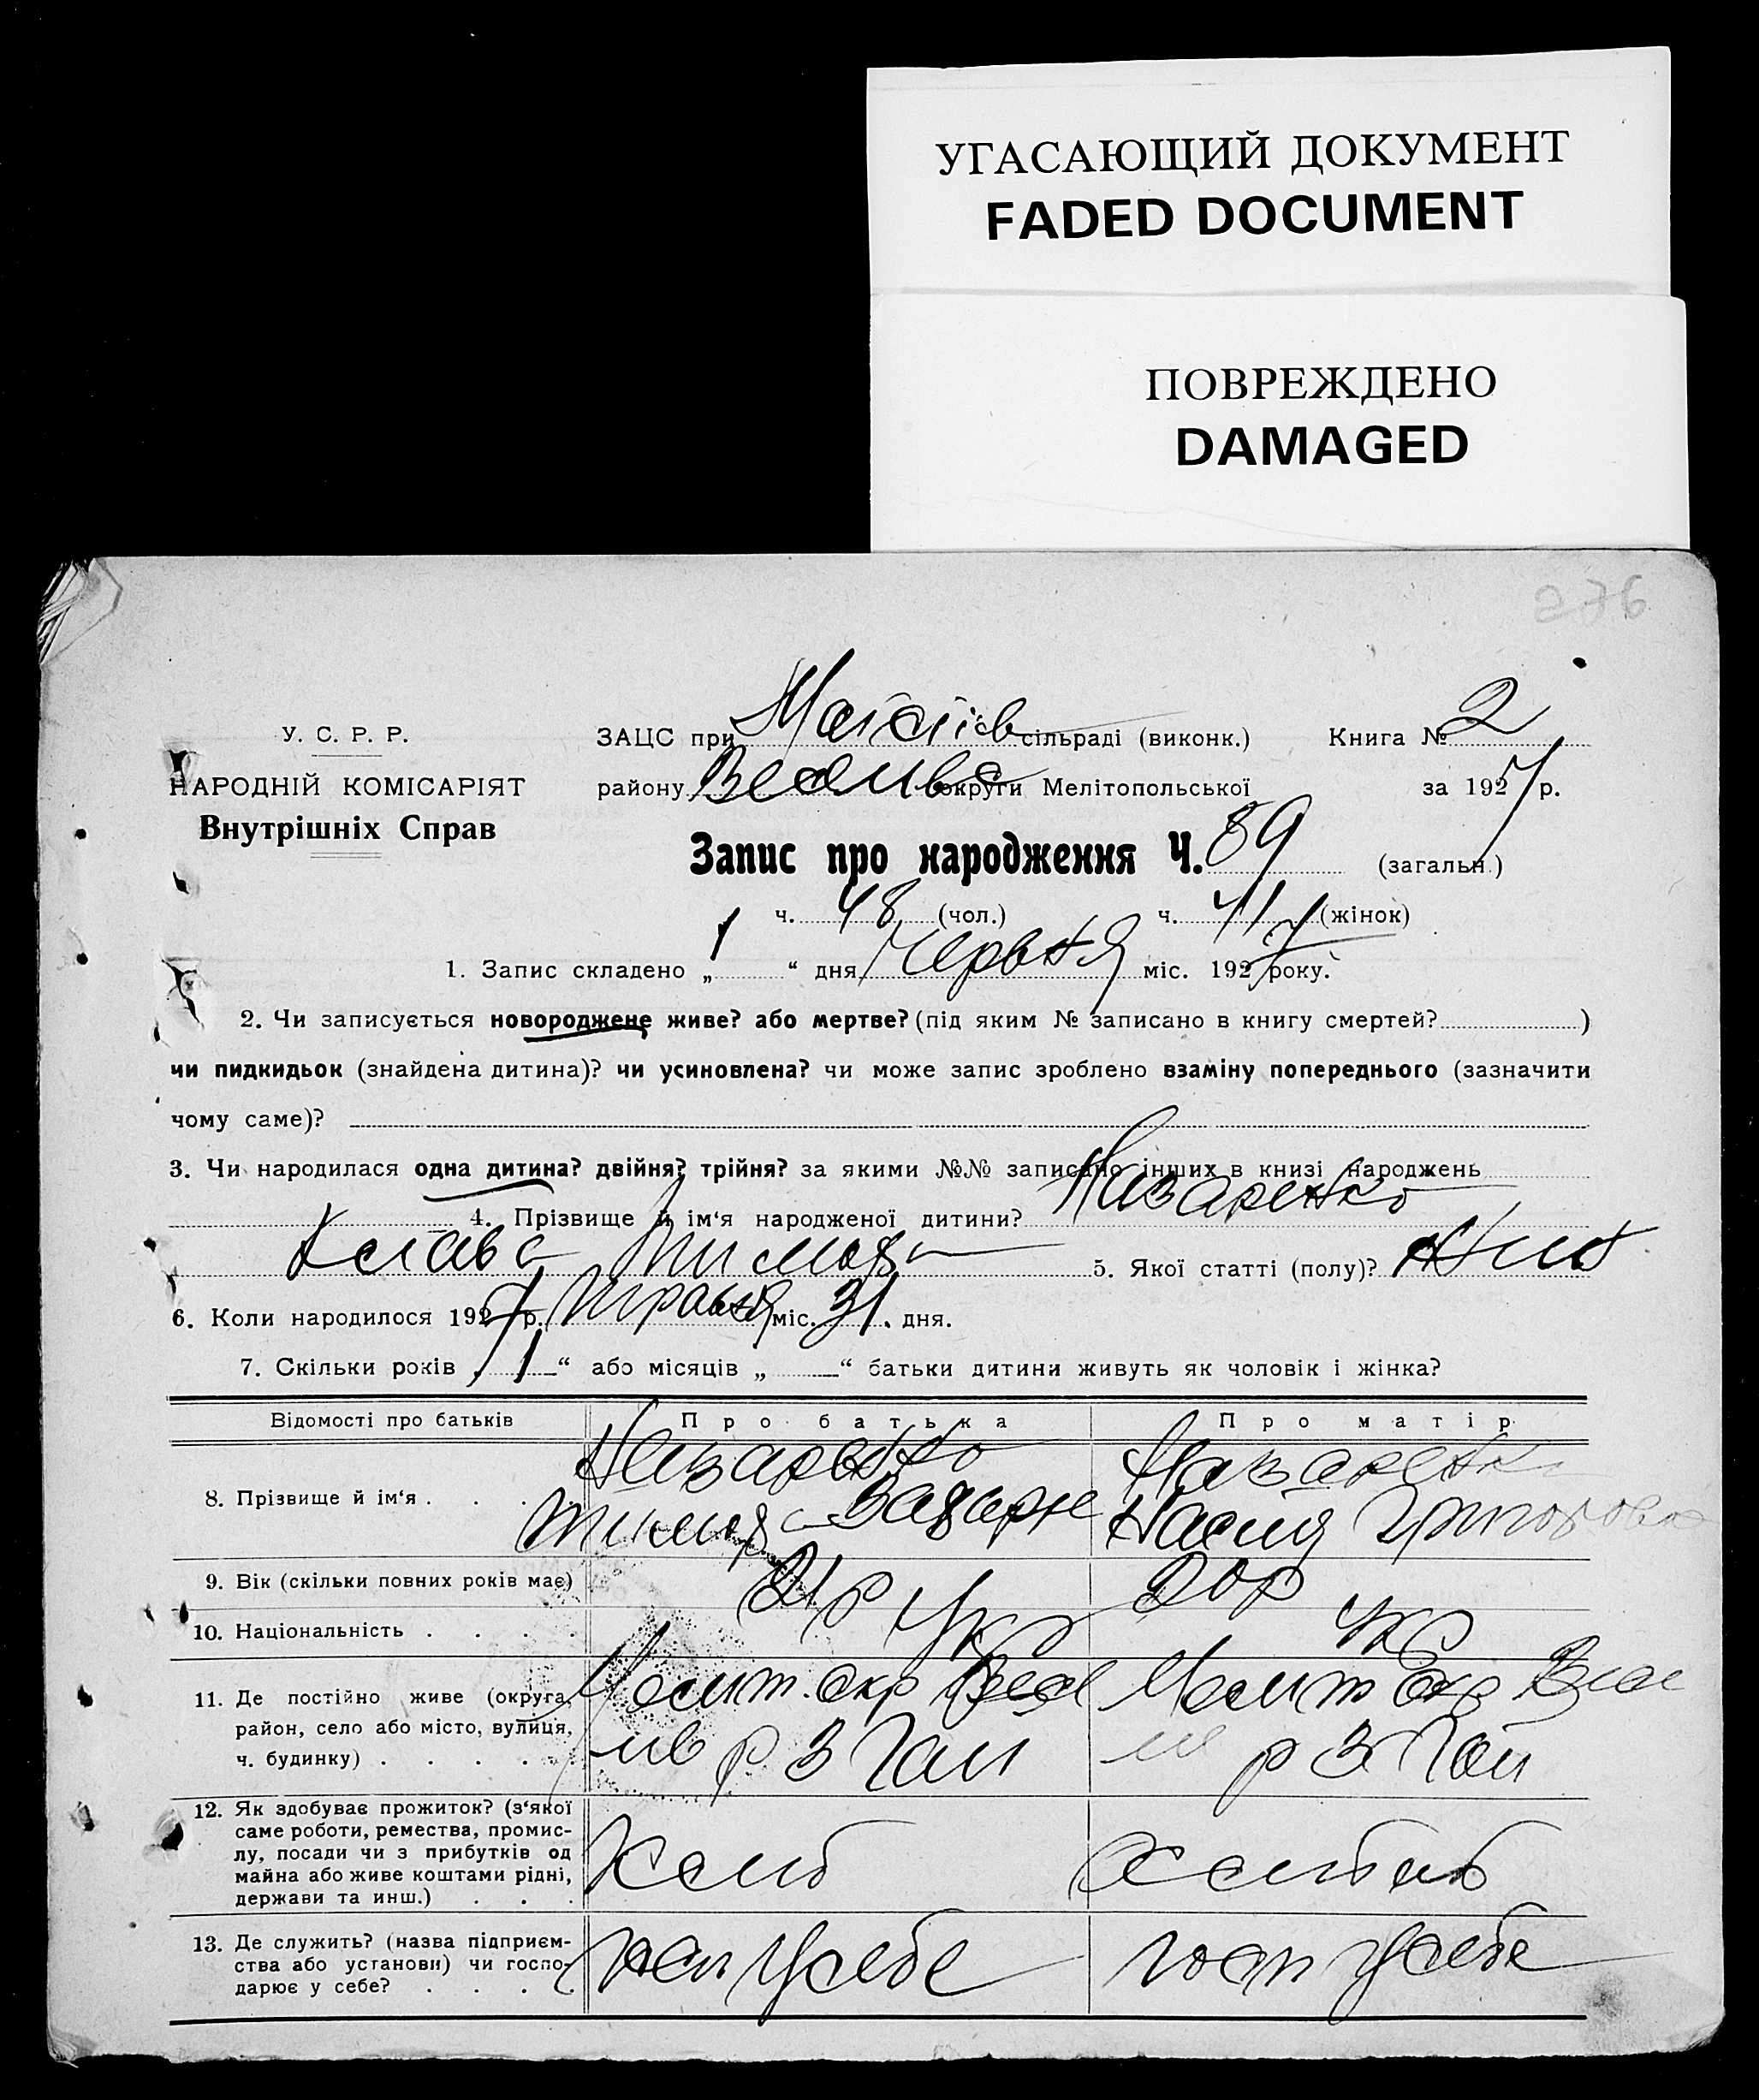 УГАСАЮЩИЙ ДОКУМЕНТ
FADED DOCUMENT
ПОВРЕЖДЕНО
DAMAGED
276
У. С. Р. Р.
НАРОДНІЙ КОМІСАРІЯТ
Внутрішніх Справ
ЗАЦС при сільраді (виконк.) Книга № 2
району округи Мелітопольської за 1927 р.
Запис про народження Ч. 89 (загальн.)
ч. 48 (чол.) ч. 41 (жінок)
1. Запис складено „ 1 “ дня Червня міс. 1927 року.
2. Чи записується новороджене живе? або мертве? (під яким № записано в книгу смертей? )
чи пидкидьок (знайдена дитина)? чи усиновлена? чи може запис зроблено взаміну попереднього (зазначити
чому саме)?
3. Чи народилася одна дитина? двійня? трійня? за якими №№ записано інших в книзі народжень
4. Прізвище й ім‘я народженої дитини? Назаренко
Клава 5. Якої статті (полу)? Жин
6. Коли народилося 1927 р. Травня міс. 31 дня.
7. Скільки років „ 1 “ або місяців „ “ батьки дитини живуть як чоловік і жінка?
Відомості про батьків Про батька Про матір
8. Прізвище й ім‘я . . . . Назаренко Назаренко
Григоровна
9. Вік (скільки повних років має) 21 р 20 р
10. Національність . . . . Укр Укр
11. Де постійно живе (округа, Мелит. окр Весел Мелит Окр Весел
район, село або місто, вулиця,
ч. будинку) . . . . р З Гай р З Гай
12. Як здобуває прожиток? (з‘якої
саме роботи, ремества, промис-
лу, посади чи з прибутків од
майна або живе коштами рідні,
держави та инш.) . . . Хліб Хлібоб
13. Де служить? (назва підприєм-
ства або установи) чи госпо-
дарює у себе? . . . . усебе усебе